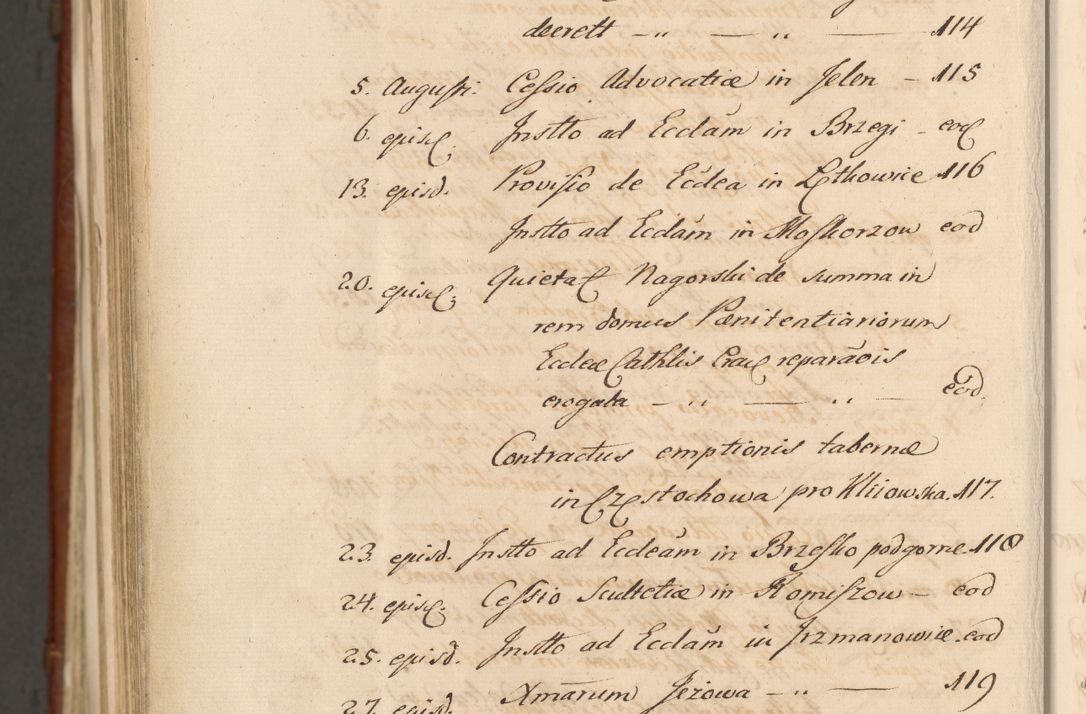 decrett - " - " - 114
5. Augusti. Cessio Advocatiæ in Jelen - 115
6. episd. Instto ad Ecclam in Brzegi - eod
13. episd. Provisio de Ecclea in Lętkowice 116
Instto ad Ecclam in Moskorzow eod
20. episd. Quietac Nagorski de summa in
rem domus Pænitentiariorum
Eccleæ Cathlis Crac reparaois
erogata - " - " - eod.
Contractus emptionis tabernæ
in Częstochowa pro Kliiowska. 117.
23. episd. Instto ad Eccleam in Brzesko podgorne. 118
24. episd. Cessio Scultetiæ in Komiszow - eod
25. episd. Instto ad Ecclam in Jrzmanowice. eod
27. episd. Amarum Jeżowa - " - 119